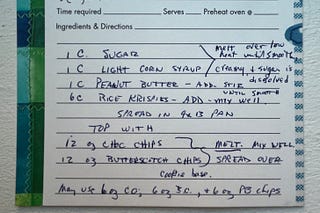 Time required Serves Preheat oven @
Ingredients & Directions
melt over low
1 C. SUGAR heat until smooth
1 C LIGHT CORN SYRUP creamy & sugar is
dissolved
1 C PEANUT BUTTER - ADD. STIR
until smooth
6C RICE KRISPIES - ADD - MIX WELL.
SPREAD IN 9x13 PAN
TOP WITH
12 oz CHOC CHIPS MELT. MIX WELL.
12 oz BUTTERSCOTCH CHIPS SPREAD OVER
cookie base.
May use 6 oz CO, 6 oz B.C. + 6 oz PB chips